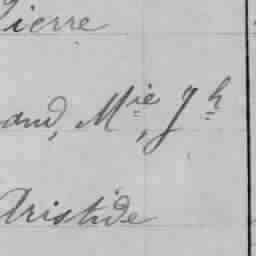 Pierre
and, Mie, Jh
Aristide